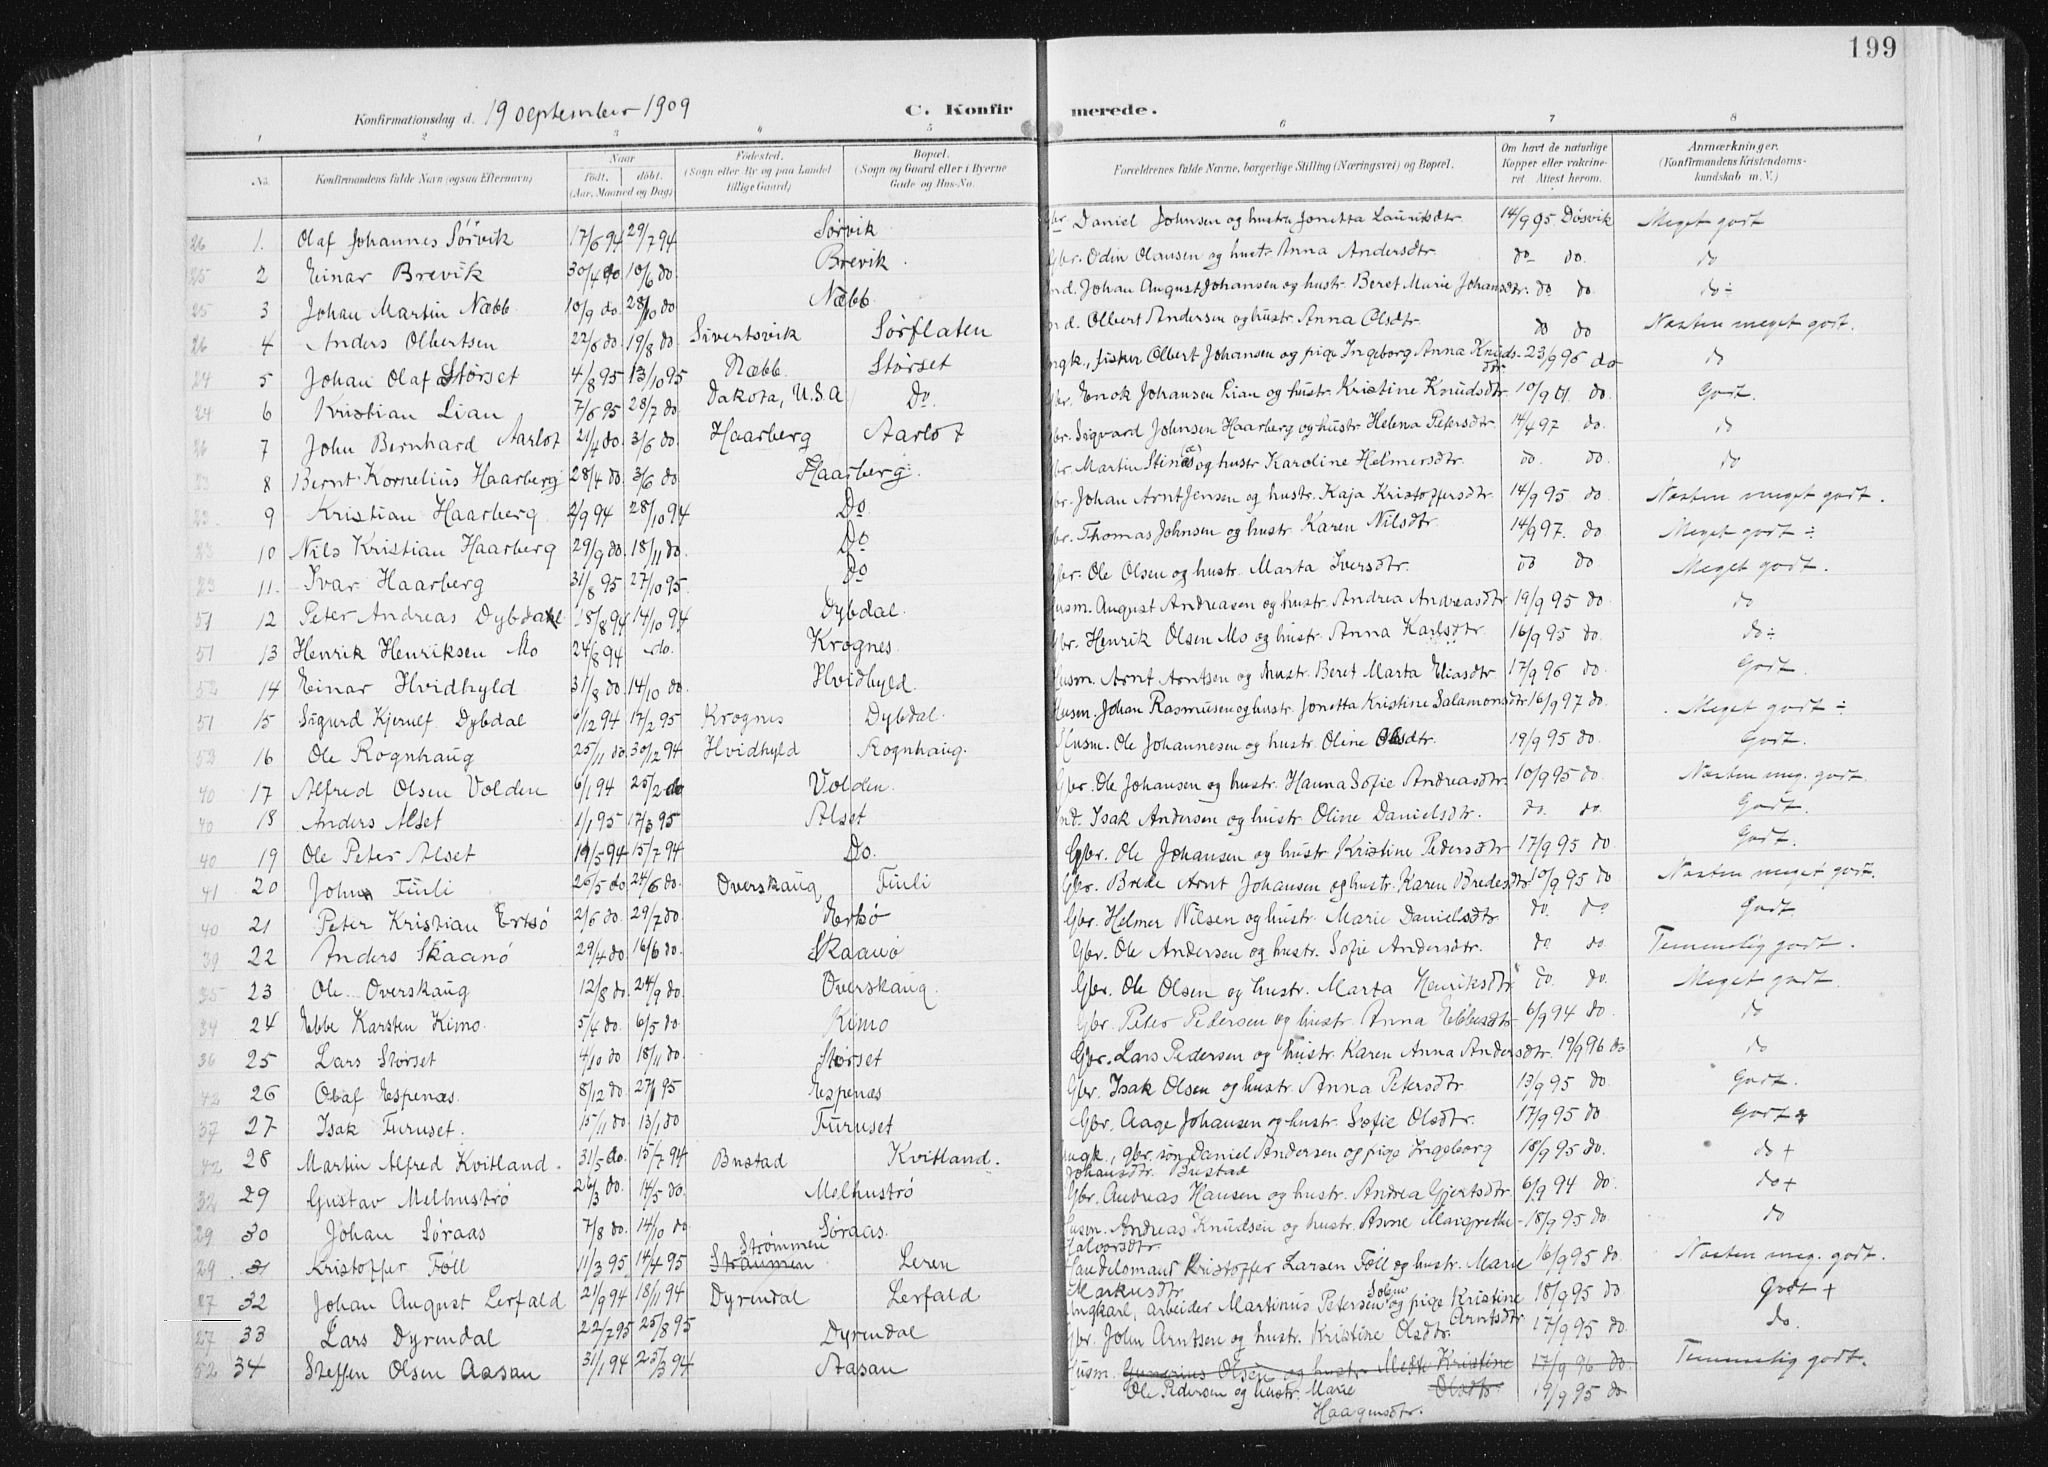 199
Konfirmationsdag d. 19 september 1909 C. Konfirmerede.
1 2 3 4 5 6 7 8
No. Konfirmandens fulde Navn (ogsaa Efternavn) Naar født. døbt. (Aar, Maaned og Dag) Fødested. (Sogn eller By og paa Landet tillige Gaard) Bopæl. (Sogn og Gaard eller i Byerne Gade og Hus-No. Forældrenes fulde Navne, borgerlige Stilling (Næringsvei) og Bopæl. Om havt de naturlige Kopper eller vakcineret. Attest herom. Anmærkninger. (Konfirmandens Kristendomskundskab m. V.)
26 1. Olaf Johannes Sørvik 17/6 94 29/7 94 Sørvik Gbr. Daniel Johnsen og hustr. Jonetta Lauritsdtr. 14/9 95 Døsvik Meget godt
25 2 Einar Brevik 30/4 do 10/6 do Brevik Gbr. Odin Olausen og hustr. Anna Andersdtr. do do. do
25 3 Johan Martin Næbb 10/9 do. 28/10 do Næbb. Ind. Johan August Johansen og hustr. Beret Marie Johansdtr. do do do ÷
26 4 Anders Olbertsen 22/6 do 19/8 do Sivertsvik Sørflaten Ind. Olbert Andersen og hustr. Anna Olsdtr. do do Næsten meget godt.
24 5 Johan Olaf Størset 4/8 95 13/10 95 Næbb. Størset Ungk., fisker Olbert Johansen og pige Ingeborg Anna Knudsdtr. 23/9 96 do do
24 6 Kristian Lian 7/6 95 28/7 do Dakota, U.S.A Do. Gbr. Enok Johansen Lian og hustr. Kristine Knudsdtr 10/9 01. do. Godt.
26 7 John Bernhard Aarlot 21/4 do. 3/6 do Haarberg Aarlot Gbr. Sigvard Johnsen Haarberg og hustr. Helena Petersdtr. 14/4 97 do. do
23 8 Bernt Kornelius Haarberg 28/4 do. 3/6 do Haarberg. Gbr Martin og hustr Karoline Helmersdtr. do. do. do
23 9 Kristian Haarberg 2/9 94 28/10 94 Do Gbr. Johan Arnt Jensen og hustr. Kaja Kristoffersdtr. 14/9 95 do Næsten meget godt.
23 10 Nils Kristian Haarberg 29/9 do. 18/11 do. Do Gbr. Thomas Johnsen og hustr. Karen Nilsdtr. 14/9 97. do Meget godt ÷
23 11. Ivar Haarberg 31/8 95 27/10 95. Do Gbr. Ole Olsen og hustr. Marta Iversdtr. do do Meget godt.
51 12 Peter Andreas Dybdahl 18/8 94 14/10 94 Dybdal. Husm. August Andreasen og hustr. Andrea Andreasdtr. 19/9 95 do do
51 13 Henrik Henriksen Mo 24/8 94 do. Krognes. Gbr. Henrik Olsen Mo og hustr. Anna Karlsdtr. 16/9 95 do. do ÷
52 14 Einar Hvidhyld 31/8 do. 14/10 do. Hvidhyld. Husm. Arnt Arntsen og hustr. Beret Marta Eliasdtr 17/9 96 do. Godt
51 15 Sigurd Kjerulf Dybdal 6/12 94 17/2 95 Krognes Dybdal. Husm. Johan Rasmusen og hustr. Jonetta Kristine Salamonsdtr 16/9 97 do. Meget godt ÷
53 16 Ole Rognhaug 25/11 do. 30/12 94 Hvidhyld Rognhaug. Husm. Ole Johannesen og hustr. Oline Olsdtr. 19/9 95 do. Godt.
40 17 Alfred Olsen Volden 6/1 94 25/2 do Volden. Gbr. Ole Johansen og hustr. Hanna Sofie Andreasdtr. 10/9 95 do. Næsten meg. godt
40 18 Anders Alset 1/1 95 17/3 95 Alset Ind. Isak Andersen og hustr. Oline Danielsdtr. do. do. Godt.
40 19 Ole Peter Alset 19/5 94 15/7 94 Do. Gbr. Ole Johansen og hustr Kristine Pedersdtr 17/9 95 do Godt.
41 20 John Fiuli 26/5 do 24/6 do. Overskaug Fiuli Gbr. Brede Arnt Johansen og hustr. Karen Bredesdtr 10/9 95 do Næsten meget godt.
40 21 Peter Kristian Ertsø 2/6 do. 29/7 do. Ertsø Gbr. Helmer Nilsen og hustr. Marie Danielsdtr do. do Godt.
39 22 Anders Skaanø 29/4 do 16/6 do. Skaanø Gbr. Ole Andersen og hustr. Sofie Andersdtr. do do. Temmelig godt.
35 23 Ole Overskaug 12/8 do. 24/9 do. Overskaug. Gbr. Ole Olsen og hustr. Marta Henriksdtr do do. Meget godt
34 24 Ebbe Karsten Kimo. 5/4 do. 6/5 do. Kimo Gbr. Peter Pedersen og hustr. Anna Ebbesdtr 6/9 94 do. do
36 25 Lars Størset 4/10 do 18/11 do. Størset Gbr. Lars Pedersen og hustr. Karen Anna Andersdtr. 19/9 96 do do
42 26 Olaf Espenæs. 8/12 do. 27/1 95 Espenæs Gbr. Isak Olsen og hustr. Anna Petersdtr. 13/9 95 do. Godt.
37 27 Isak Furuset. 15/11 do 13/1 do Furuset Gbr. Aage Johansen og hustr. Sofie Olsdtr. 17/9 95 do Godt +
42 28 Martin Alfred Kvitland. 31/5 do. 15/7 94 Bustad Kvitland. Ungk., gbr. søn Daniel Andersen og pige Ingeborg 18/9 95 do. do +
Johansdtr. Bustad
32 29 Gustav Melhustrø 26/3 do. 14/5 do. Melhustrø Gbr. Andreas Hansen og hustr. Andrea Gjertsdtr 6/9 94 do. do +
29 30 Johan Søraas 7/8 do. 14/10 do Søraas. Husm. Andreas Knudsen og hustr. Anne Margrethe 18/9 95 do. do
Halvorsdtr.
29 31 Kristoffer Føll 11/3 95 14/4 95 Straumen Strømmen Leren Handelsmand Kristoffer Larsen Føll og hustr. Marie 16/9 95 do Næsten meg. godt.
Markusdtr
27 32 Johan August Lerfald 21/9 94 18/11 94 Dyrendal Lerfald Ungkarl, arbeider Martinus Petersen Solem og pige Kristine Arntsdtr 18/9 95 do Godt +
27 33 Lars Dyrendal 22/7 95 25/8 95 Dyrendal Gbr. John Arntsen og hustr. Kristine Olsdtr. 17/9 95 do. do.
52 34 Steffen Olsen Aasan 31/1 94 25/3 94 Aasan Husm. Gunerius Olsen og hustr. Mette Kristine Olsdtr 17/9 96 do. Temmelig godt.
Ole Pedersen og hustr. Marie Haagensdtr. 19/9 95 do